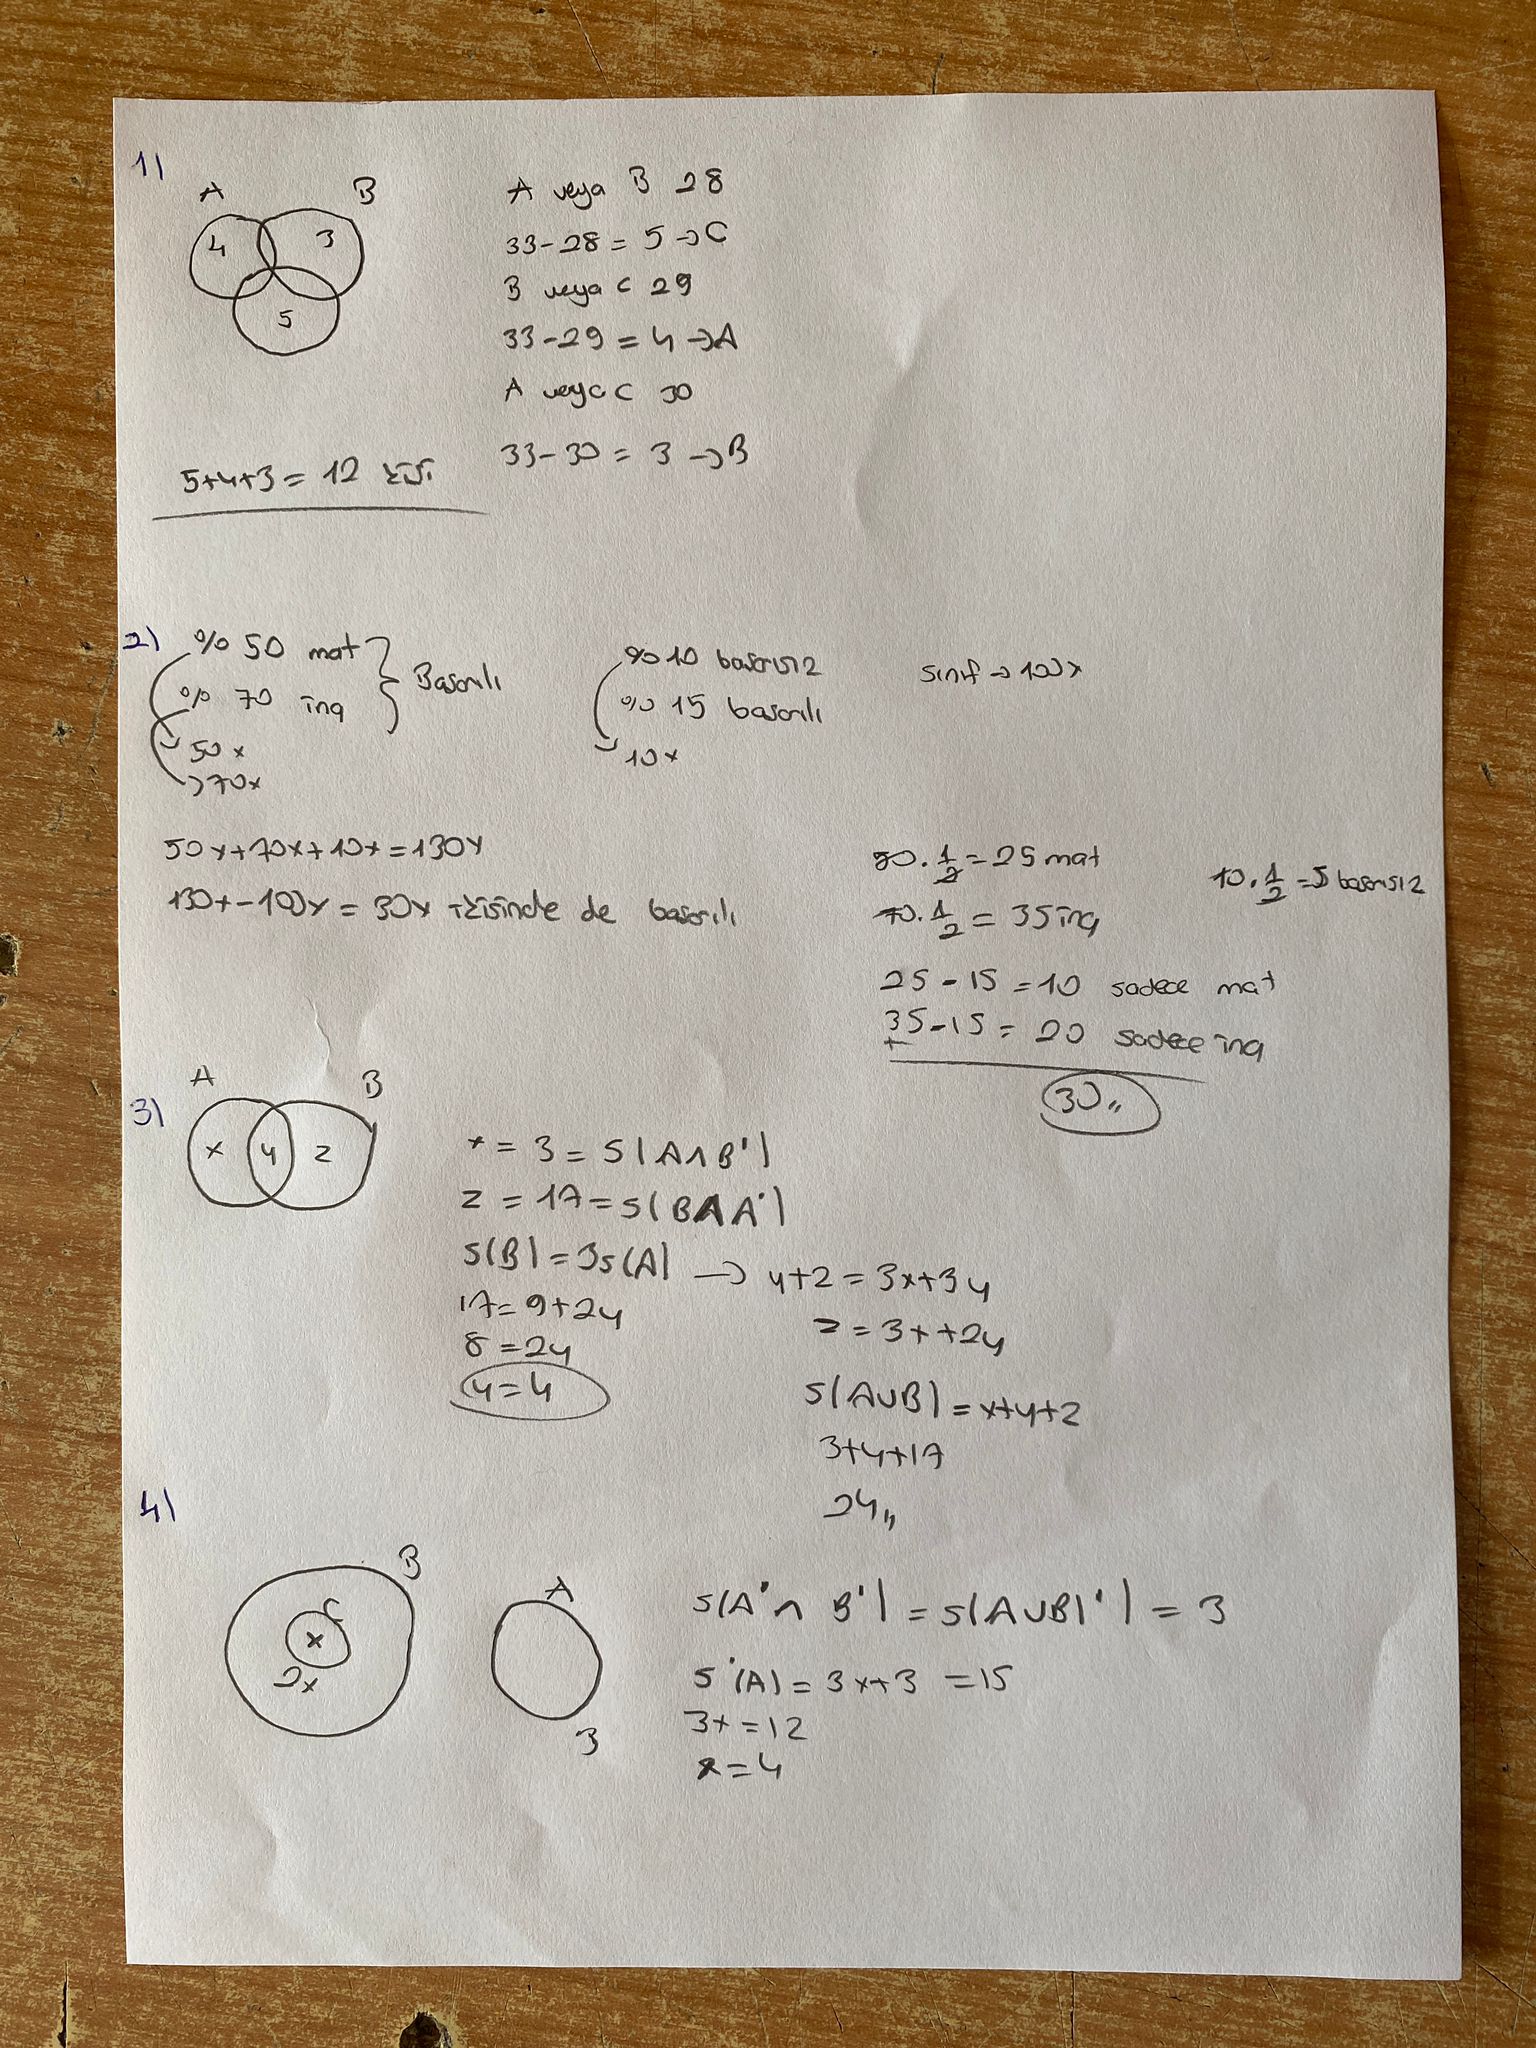 1)
A B
4 3
5
A veya B 28
33-28 = 5 → C
B veya C 29
33-29 = 4 → A
A veya C 30
33-30 = 3 → B
5+4+3 = 12 kişi
2) %50 mat
%70 ing
Başarılı
50x
70x
%10 başarısız
%15 başarılı
10x
sınıf → 100x
50x+70x+10x=130x
130x-100x = 30x ikisinde de başarılı
50.1/2=25 mat
70.1/2 = 35 ing
10.1/2=5 başarısız
25 - 15 = 10 sadece mat
35-15 = 20 sadece ing
+
30,,
3) A B
x y z
x = 3 = s(A∩B')
z = 17 = s(B∩A')
s(B) = 3s(A) → y+z = 3x+3y
17 = 9+2y
z = 3x+2y
8 = 2y
y = 4
s(A∪B) = x+y+z
3+4+17
24,,
4)
B A
C
x
2x
3
s(A'∩ B') = s(A∪B)') = 3
s'(A) = 3x+3 = 15
3x = 12
x = 4